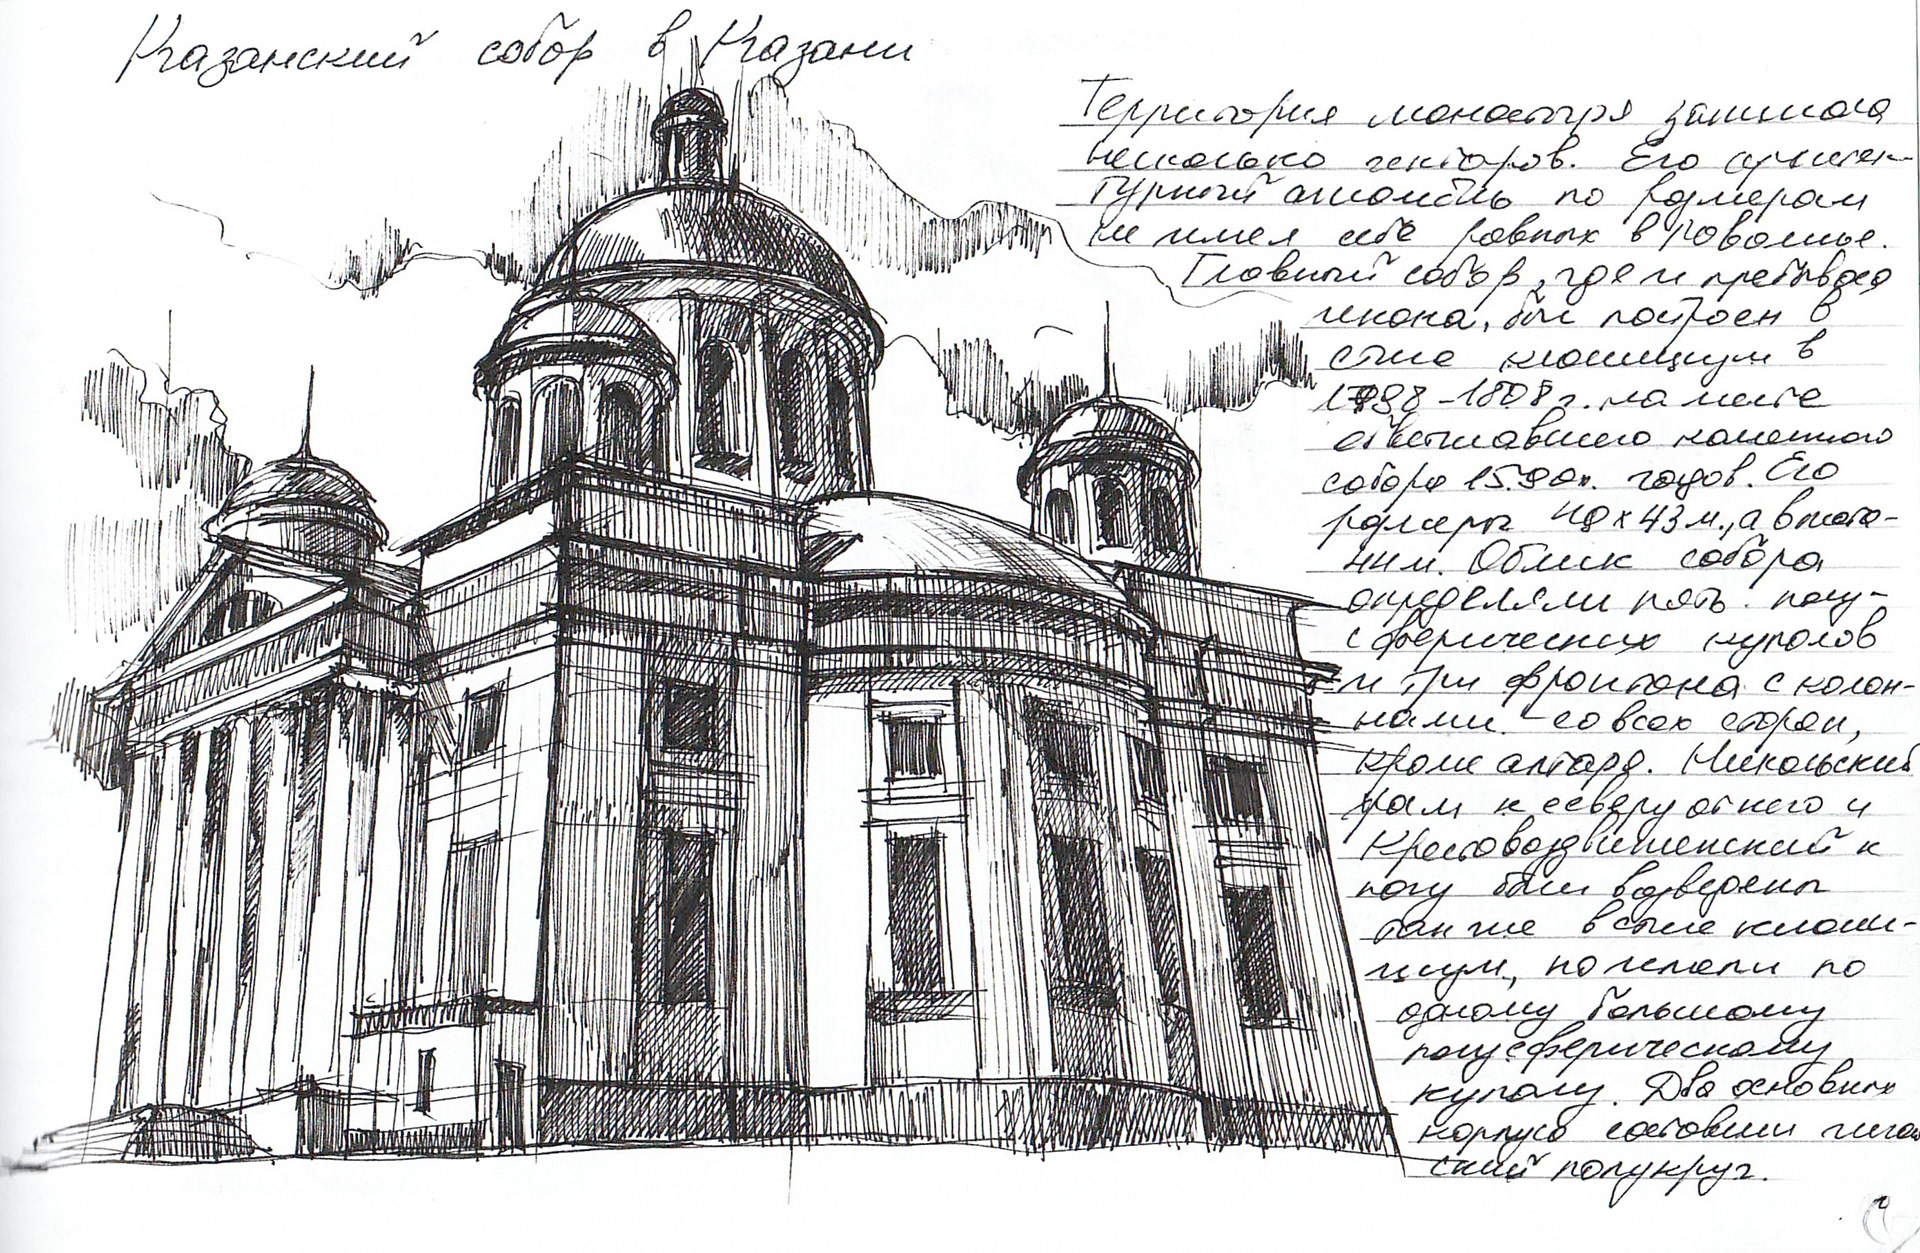 Казанский собор в Казани
Территория монастыря занимала
несколько гектаров. Его архитек-
турный ансамбль по размерам
не имел себе равных в Поволжье.
Главный собор, где и пребывала
икона, был построен в
стиле классицизм в
1798-1808 г. на месте
обветшавшего каменного
собора 1590х. годов. Его
размеры 48 х 43 м., а высота-
44 м. Облик собора
определяли пять полу-
сферических куполов
и три фронтона с колон-
нами - со всех сторон,
кроме алтаря. Никольский
храм к северу от него и
Крестовоздвиженский к
югу были возведены
так же в стиле класси-
цизм, но имели по
одному большому
полусферическому
куполу. Два основных
корпуса составили гигант
ский полукруг.